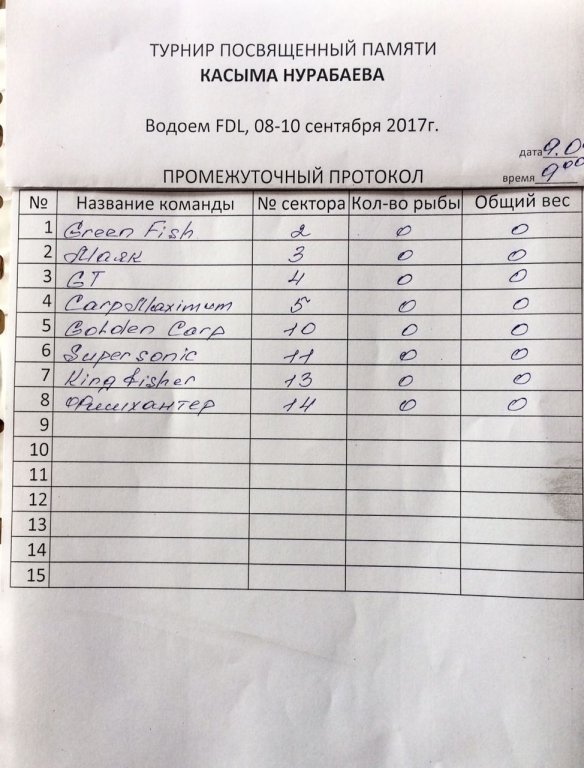 ТУРНИР ПОСВЯЩЕННЫЙ ПАМЯТИ
КАСЫМА НУРАБАЕВА
Водоем FDL, 08-10 сентября 2017г.
дата 9.0
ПРОМЕЖУТОЧНЫЙ ПРОТОКОЛ время 9 00
№ Название команды № сектора Кол-во рыбы Общий вес
1 Green Fish 2 0 0
2 Маяк 3 0 0
3 GT 4 0 0
4 Carp Maximum 5 0 0
5 Golden Carp 10 0 0
6 Supersonic 11 0 0
7 King fisher 13 0 0
8 Фишхантер 14 0 0
9
10
11
12
13
14
15